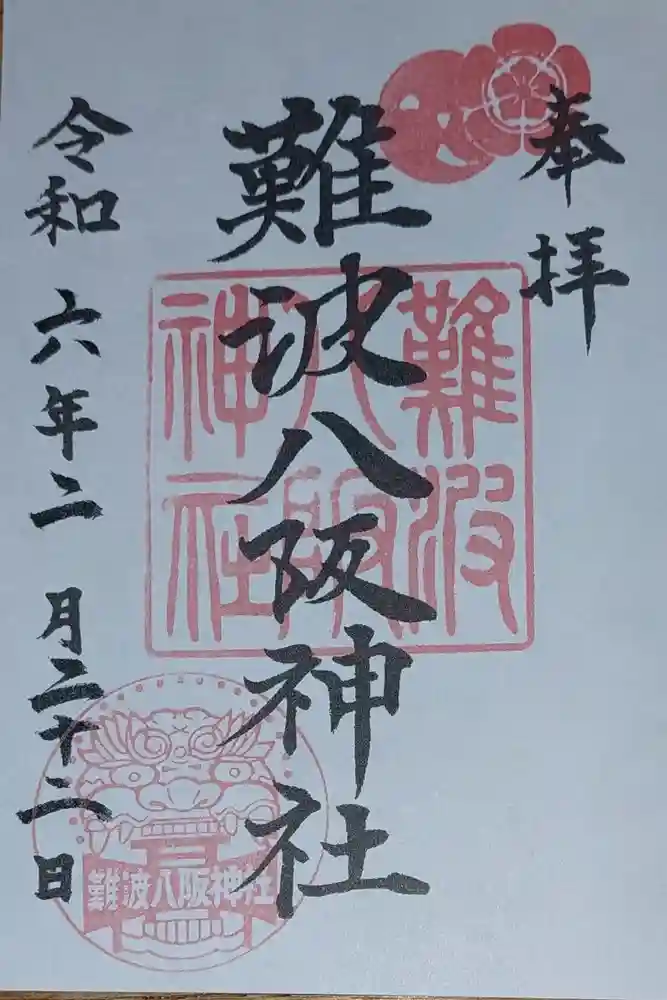 奉拝
難波八阪神社
難波
八阪
神社
令和六年二月二十二日
難波八阪神社